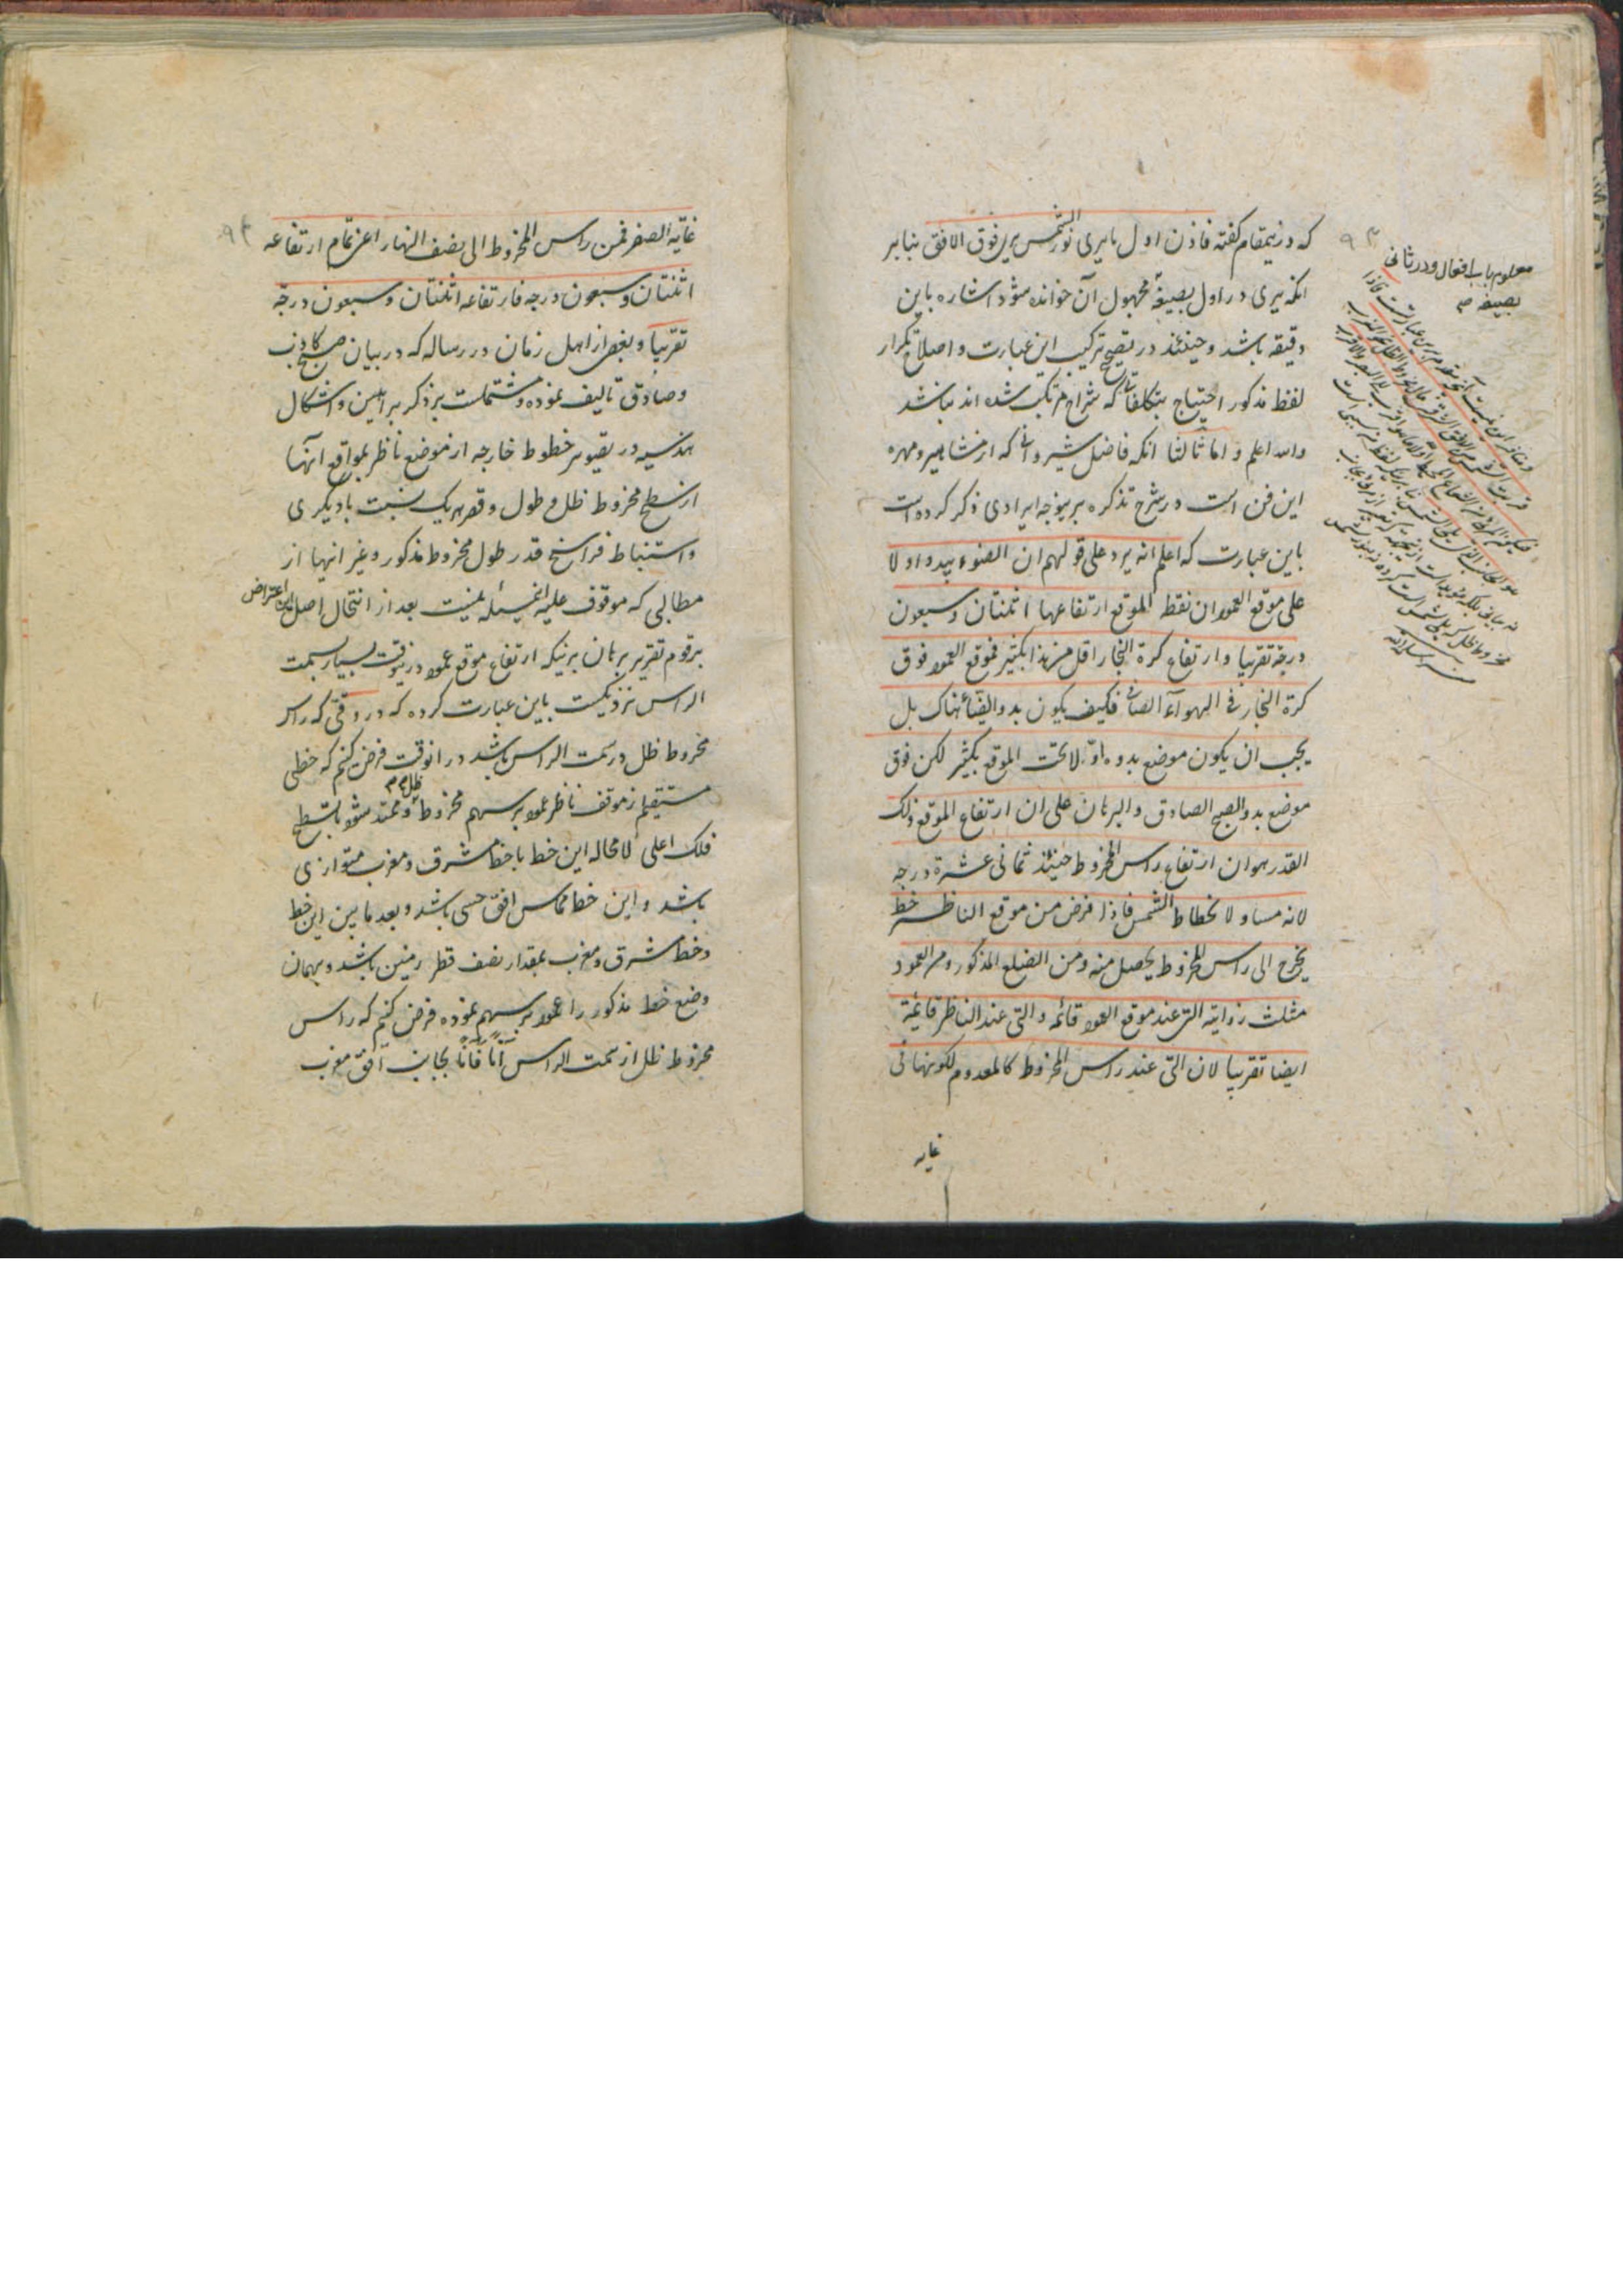 که درینمقام گفته فاذن اول ما یری نور الشمس یری فوق الافق بنابر
انکه یری در اول بصیغهٔ مجهول آن خوانده شود اشاره باین
دقیقه باشد و حینئذ در تصحیح ترکیب این عبارت و اصلاح تکرار
لفظ مذکور احتیاج بتکلفاتی که شراح مرتکب شده اند نباشد
والله اعلم و اما ثالثا انکه فاضل شیروانی که از مشاهیر و مهره
این فن است در شرح تذکره برینوجه ایرادی ذکر کرده است
باین عبارت که اعلم انه یرد علی قولهم ان الضوء یبدو اولا
علی موقع العمود ان نقطة الموقع ارتفاعها اثنتان و سبعون
درجة تقریبا و ارتفاع کرة البخار اقل من هذا بکثیر فموقع العمود فوق
کرة البخار فی الهوآء الصافی فکیف یکون بدو الضیاء هناک بل
یجب ان یکون موضع بدوه اوّلا تحت الموقع بکثیر لکن فوق
موضع بدو الصبح الصادق و البرهان علی ان ارتفاع الموقع ذلک
القدر هو ان ارتفاع راس المخروط حینئذ ثمانی عشرة درجه
لانه مساو لانحطاط الشمس فاذا فرض من موقع الناظر خط
یخرج الی راس المخروط یحصل منه و من الضلع المذکور و من العمود
مثلث زوایته التی عند موقع العمود قائمه و التی عند الناظر قایمة
ایضا تقریبا لان التی عند راس المخروط کالمعدوم لکونها فی
غایه
معلوم باب افعال و در ثانی
بصیغه
غایة الصغر فمن راس المخروط الی نصف النهار اعنی تمام ارتفاعه
اثنتان و سبعون درجه فارتفاعه اثنتان و سبعون درجة
تقریبا و بعضی از اهل زمان در رساله که در بیان صبح کاذب
و صادق تالیف نموده و مشتملست بر ذکر براهین و اشکال
هندسیه در تصویر خطوط خارجه از موضع ناظر بمواقع آنها
از سطح مخروط ظل و طول و قصر هر یک نسبت بادیگری
و استنباط فراسخ قدر طول مخروط مذکور و غیر انها از
مطالبی که موقوف علیه اینمسئله نیست بعد از انتحال اصل این اعتراض
مرقوم تقریر برهان برینکه ارتفاع موقع عمود درینوقت بسیار بسمت
الراس نزدیکست باین عبارت کرده که در وقتی که راس
مخروط ظل در سمت الراس باشد در انوقت فرض کنیم که خطی
مستقیم از موقف ناظر عمود بر سهم مخروط ظل و ممتد شود تا بسطح
فلک اعلی لا محاله این خط با خط مشرق و مغرب متوازی
باشد و این خط مماس افق حسی باشد و بعد ما بین این خط
و خط مشرق و مغرب بمقدار نصف قطر زمین باشد و بهمان
وضع خط مذکور را عمود بر سهم نموده فرض کنیم که راس
مخروط ظل از سمت الراس آنا فآنا بجانب افق مغرب